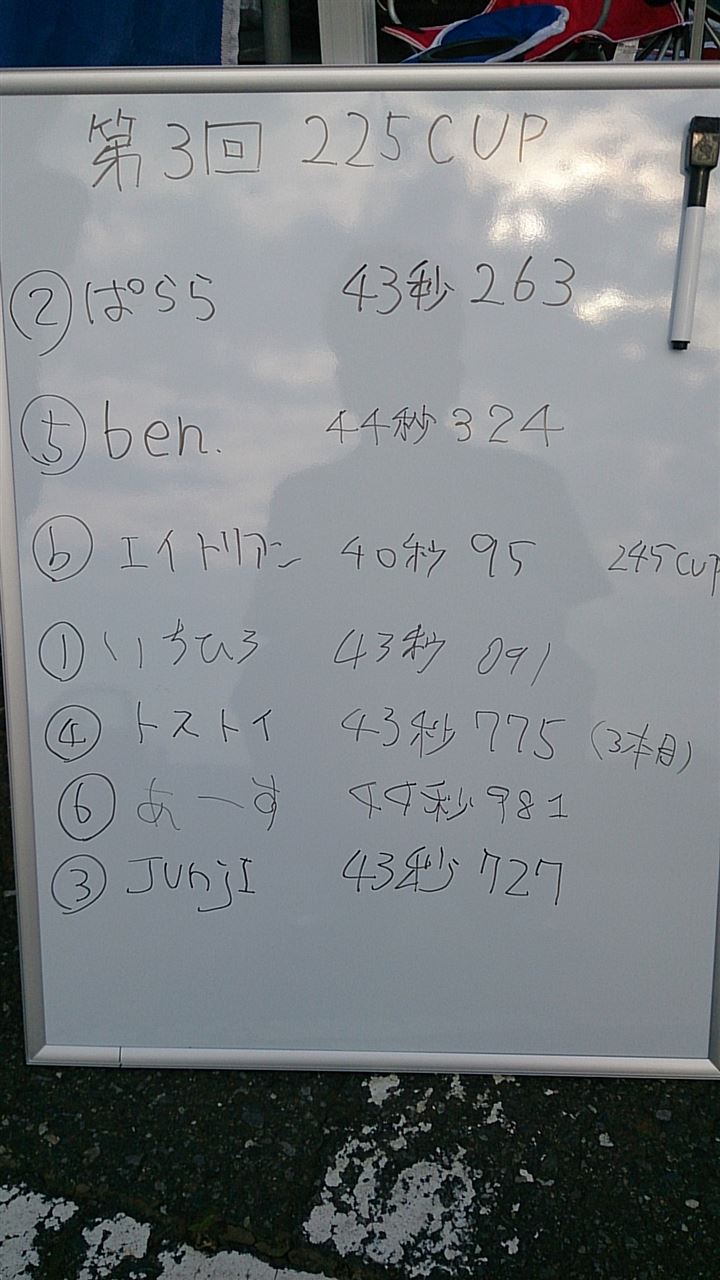 第3回 225CUP
② ぱらら 43秒263
⑤ ben. 44秒324
ⓑ エイトリアン 40秒95 245CUP
① いちひろ 43秒091
④ トストイ 43秒775 (3本目)
⑥ あーす 44秒981
③ JUnjI 43秒727